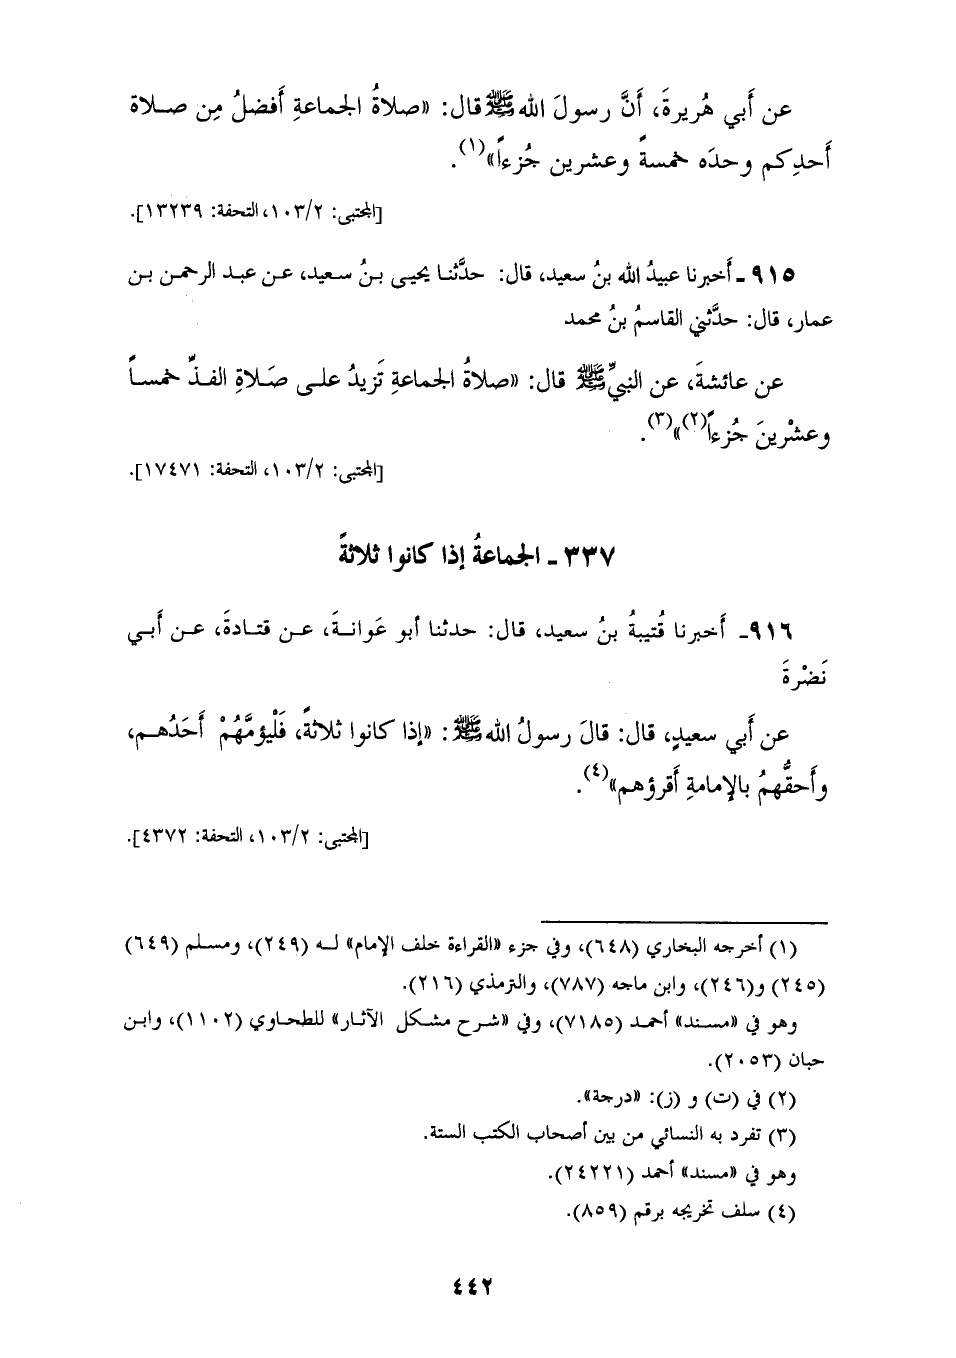 عن أَبي هُريرةَ، أَنَّ رسولَ الله ﷺ قال: «صلاةُ الجماعةِ أَفضلُ مِن صلاة
أَحدِكم وحدَه خمسةً وعشرين جُزءاً»(١).
[المجتبى: ١٠٣/٢، التحفة: ١٣٢٣٩].
٩١٥ - أَخبرنا عبيدُ الله بنُ سعيد، قال: حدَّثنا يحيى بنُ سعيد، عن عبد الرحمن بن
عمار، قال: حدَّثني القاسمُ بنُ محمد
عن عائشةَ، عن النبيِّ ﷺ قال: «صلاةُ الجماعةِ تَزيدُ على صَلاةِ الفذِّ خمساً
وعشْرينَ جُزءاً(٢)»(٣).
[المجتبى: ١٠٣/٢، التحفة: ١٧٤٧١].
٣٣٧ - الجماعةُ إذا كانوا ثلاثةً
٩١٦- أَخبرنا قُتيبةُ بنُ سعيد، قال: حدثنا أبو عَوانةَ، عن قتادةَ، عن أَبي
نَضْرةَ
عن أَبي سعيدٍ، قال: قالَ رسولُ الله ﷺ: «إذا كانوا ثلاثةً، فَلْيؤمَّهُمْ أَحَدُهم،
وأَحقُّهمُ بالإمامةِ أَقرؤهم»(٤).
[المجتبى: ١٠٣/٢، التحفة: ٤٣٧٢].
(١) أخرجه البخاري (٦٤٨)، وفي جزء «القراءة خلف الإمام» له (٢٤٩)، ومسلم (٦٤٩)
(٢٤٥) و(٢٤٦)، وابن ماجه (٧٨٧)، والترمذي (٢١٦).
وهو في «مسند» أحمد (٧١٨٥)، وفي «شرح مشكل الآثار» للطحاوي (١١٠٢)، وابن
حبان (٢٠٥٣).
(٢) في (ت) و (ز): «درجة».
(٣) تفرد به النسائي من بين أصحاب الكتب الستة.
وهو في «مسند» أحمد (٢٤٢٢١).
(٤) سلف تخريجه برقم (٨٥٩).
٤٤٢